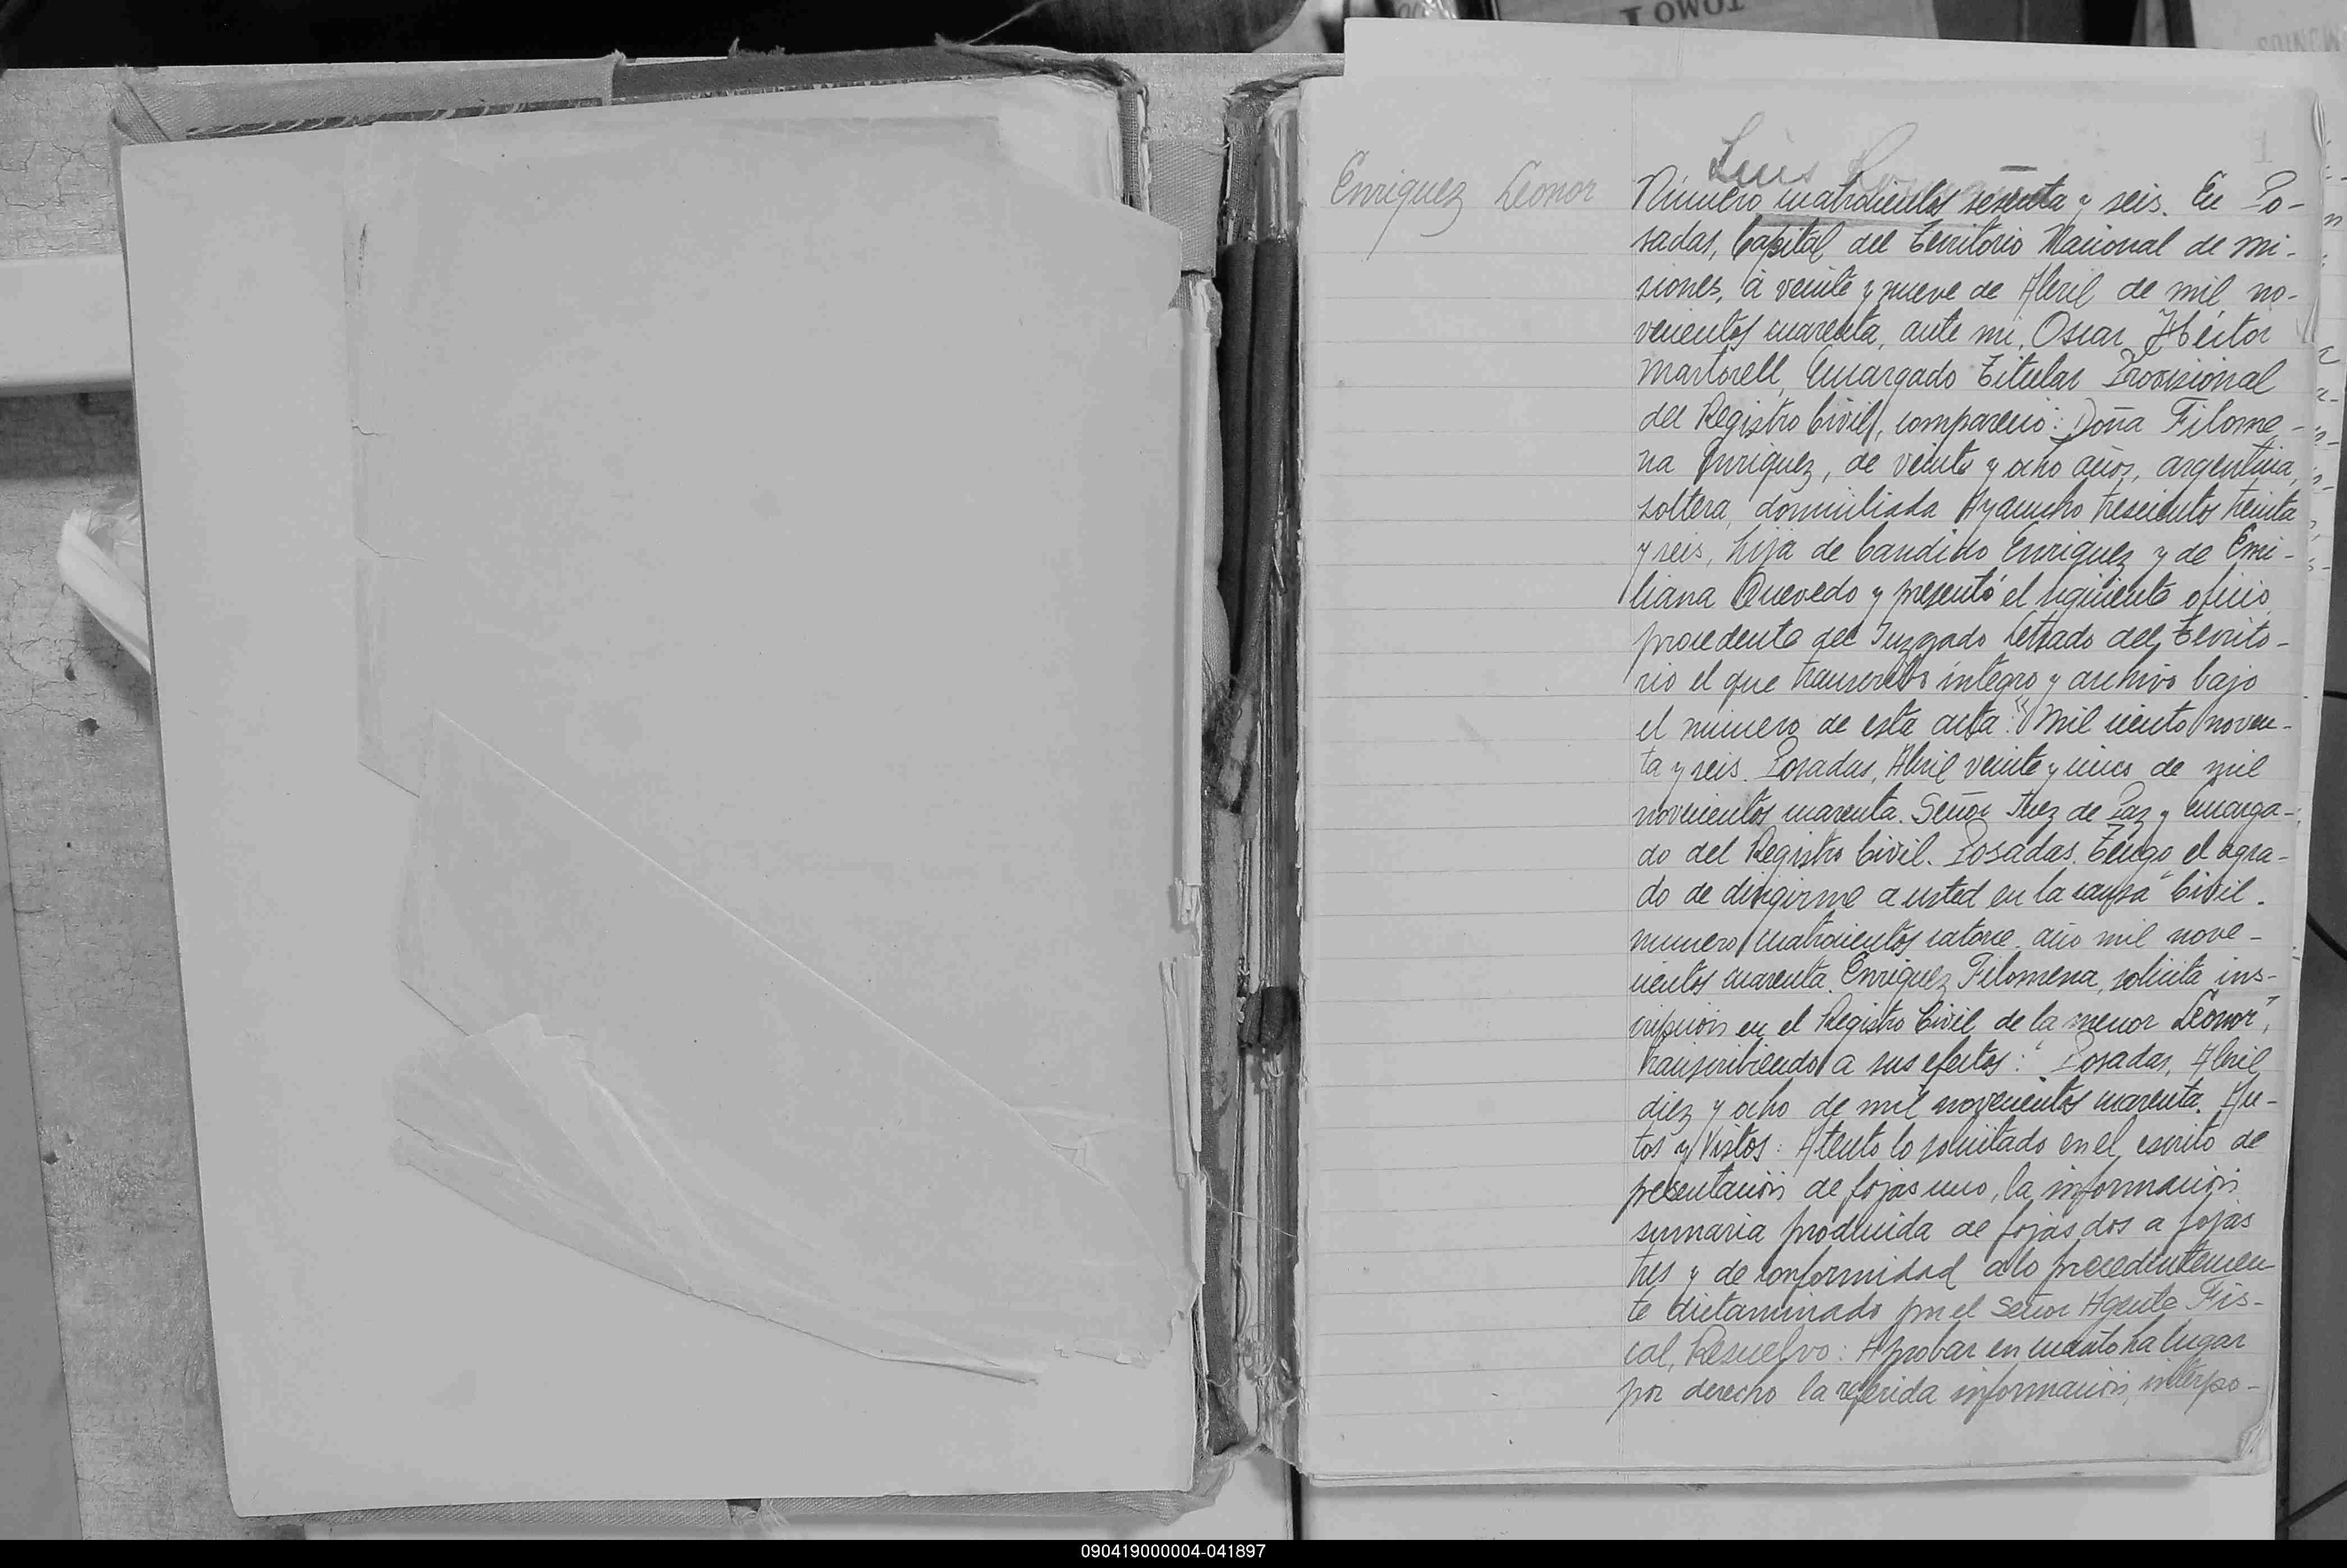 TOMO I
Luis
1
Enriquez Leonor
Número cuatrocientos sesenta y seis. En Po-
sadas, Capital del Territorio Nacional de Mi-
siones, á veinte y nueve de Abril de mil no-
vecientos cuarenta, ante mi, Oscar Héctor
Martorell, Encargado Titular Provisional
del Registro Civil, compareció: Doña Filome-
na Enriquez, de veinte y ocho años, argentina,
soltera, domiciliada Ayacucho trescientos treinta
y seis, hija de Candido Enriquez y de Emi-
liana Quevedo y presentó el siguiente oficio
procedente del Juzgado Letrado del Territo-
rio el que transcribo integro y archivo bajo
el número de esta acta: "Mil ciento noven-
ta y seis. Posadas, Abril veinte y cinco de mil
novecientos cuarenta. Señor Juez de Paz y Encarga-
do del Registro Civil. Posadas. Tengo el agra-
do de dirigirme a usted en la causa "Civil.
numero cuatrocientos catorce. año mil nove-
cientos cuarenta. Enriquez Filomena, solicita ins-
cripción en el Registro Civil de la menor Leonor",
transcribiendo a sus efectos: "Posadas, Abril
diez y ocho de mil novecientos cuarenta. Au-
tos y Vistos: Atento lo solicitado en el escrito de
presentación de fojas uno, la información
sumaria producida de fojas dos a fojas
tres y de conformidad a lo precedentemen-
te dictaminado por el Señor Agente Fis-
cal, Resuelvo: Aprobar en cuanto ha lugar
por derecho la referida información, interpo-
090419000004-041897